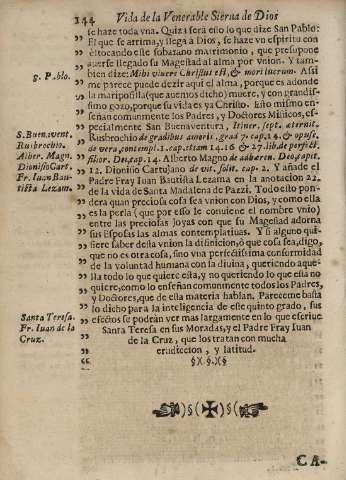 144 Vida de la Venerable Sierua de Dios
se haze toda vna. Quizá será esto lo que dize San Pablo:
El que se arrima, y llega à Dios, se haze vn espiritu con
èl tocando este soberano matrimonio, que presupone
auerse llegado su Magestad al alma por vnion. Y tam-
S. Pablo.
bien dize: Mihi viuere Christus est, & mori lucrum. Assi
me parece puede dezir aqui el alma, porque es adonde
la mariposilla (que auemos dicho) muere, y con grandis-
simo gozo, porque su vida es ya Christo. Esto mismo en-
señan comunmente los Padres, y Doctores Misticos, es-
S. Buenauent.
pecialmente San Buenauentura, Itiner. sept. æternit.
Rusbrochio.
Rusbrochio de gradibus amoris, grad. 7. cap. 14. & opusc.
Alber. Magn.
de vera, contempl. 1. cap. etiam 14. 16 & 27. lib. de perfect.
Dionisio Cart.
filior. Dei, cap. 14. Alberto Magno de adhæren. Deo, capit.
Fr. Iuan Bau-
12. Dionisio Cartujano de vit. solit. cap. 2. Y añade el
tista Lezam.
Padre Fray Iuan Bautista Lezama en la anotacion 22.
de la vida de Santa Madalena de Pazzi. Todo esto pon-
dera quan preciosa cosa sea vnion con Dios, y como ella
es la perla (que por esso le conuiene el nombre vnio)
entre las preciosas Joyas con que su Magestad adorna
sus Esposas las almas contemplatiuas. Y si alguno qui-
siere saber desta vnion la difinicion, ò que cosa sea, digo,
que no es otra cosa, sino vna perfectissima conformidad
de la voluntad humana con la diuina, queriendo aque-
lla todo lo que quiere esta, y no queriendo lo que esta no
quiere, como lo enseñan comunmente todos los Padres,
y Doctores, que de esta materia hablan. Pareceme basta
lo dicho para la inteligencia de este quinto grado, sus
efectos se podràn ver mas largamente en lo que escriue
Santa Teresa.
Santa Teresa en sus Moradas, y el Padre Fray Iuan
Fr. Iuan de la
de la Cruz, que los tratan con mucha
Cruz.
erudiccion, y latitud.
§)(.§.)(§
CA-